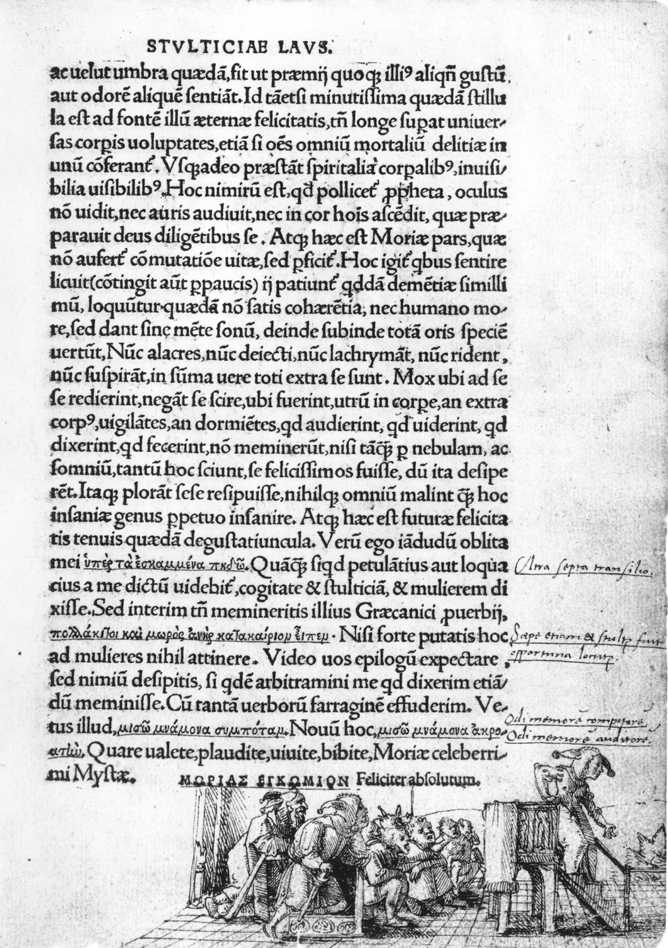 STVLTICIAE LAVS.
ac uelut umbra quædã, fit ut præmij quoqꝫ illiꝰ aliqñ gustũ,
aut odorẽ aliquẽ sentiãt. Id tãetsi minutissima quædã stillu
la est ad fontẽ illũ æternæ felicitatis, tñ longe suꝑat uniuer-
sas corꝑis uoluptates, etiã si oẽs omniũ mortaliũ delitiæ in
unũ cõferant᷑. Vsqꝫadeo præstãt spiritalia corꝑalibꝰ, inuisi-
bilia uisibilibꝰ. Hoc nimirũ est, qd̃ pollicet᷑ ꝓpheta, oculus
nõ uidit, nec auris audiuit, nec in cor hoĩs ascẽdit, quæ præ-
parauit deus diligẽtibus se. Atqꝫ hæc est Moriæ pars, quæ
nõ aufert᷑ cõmutatiõe uitæ, sed ꝑficit᷑. Hoc igit᷑ qbus sentire
licuit (cõtingit aũt ꝑpaucis) ij patiunt᷑ qddã demẽtiæ simillí
mũ, loquũtur quædã nõ satis cohærẽtia, nec humano mo-
re, sed dant sine mẽte sonũ, deinde subinde totã oris speciẽ
uertũt, Nũc alacres, nũc deiecti, nũc lachrymãt, nũc rident,
nũc suspirãt, in sũma uere toti extra se sunt. Mox ubi ad se
se redierint, negãt se scire, ubi fuerint, utrũ in corꝑe, an extra
corpꝰ, uigilãtes, an dormiẽtes, qd audierint, qd uiderint, qd
dixerint, qd fecerint, nõ meminerũt, nisi tãqꝫ ꝑ nebulam, ac
somniũ, tantũ hoc sciunt, se felicissimos fuisse, dũ ita desipe
rẽt. Itaqꝫ plorãt sese resipuisse, nihilqꝫ omniũ malint qꝫ̃ hoc
insaniæ genus ꝑpetuo insanire. Atqꝫ hæc est futuræ felicita
tis tenuis quædã degustatiuncula. Verũ ego iãdudũ oblita
mei ὑπὲρ τὰ ἐσκαμμένα πηδῶ. Quãqꝫ̃ siqd petulãtius aut loqua
cius a me dictũ uidebit᷑, cogitate & stulticiã, & mulierem di
xisse. Sed interim tñ memineritis illius Græcanici ꝓuerbij,
πολλάκι τοι καὶ μωρὸς ἀνὴρ κατακαίριον εἶπεν. Nisi forte putatis hoc
ad mulieres nihil attinere. Video uos epilogũ expectare,
sed nimiũ desipitis, si qdẽ arbitramini me qd dixerim etiã-
dũ meminisse. Cũ tantã uerborũ farraginẽ effuderim. Ve-
tus illud, μισῶ μνάμονα συμπόταμ. Nouũ hoc, μισῶ μνάμονα ἀκρο-
ατίω. Quare ualete, plaudite, uiuite, bibite, Moriæ celeberri
mi Mystæ.
ΜΩΡΙΑΣ ΕΓΚΩΜΙΟΝ Feliciter absolutum.
Vltra septa transilio.
Sæpe etiam & stult
opportuna locut
Odi memorẽ compotore
Odi memorẽ auditore.